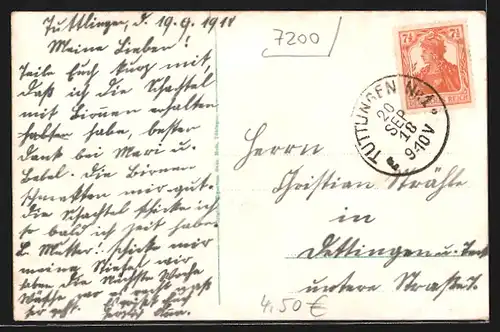 Tuttlingen, d. 19.9.1918
Meine Lieben!
Teile Euch kurz mit
daß ich die Schachtel
mit Birnen erhalten
habe, besten
Dank bei Mari u.
Die Birnen
schmeckten mir gut.
die Schachtel schicke ich
so bald ich Zeit habe.
L. Mutter! schicke mir
meine Stiefel, wir
haben die Nächste Woche
7200
7½ 7½
TUTTLINGEN No 1
20
SEP
18
9-10V
Herrn
Christian Strähle
in
Dettingen u. Teck
untere Straße
4,50 €